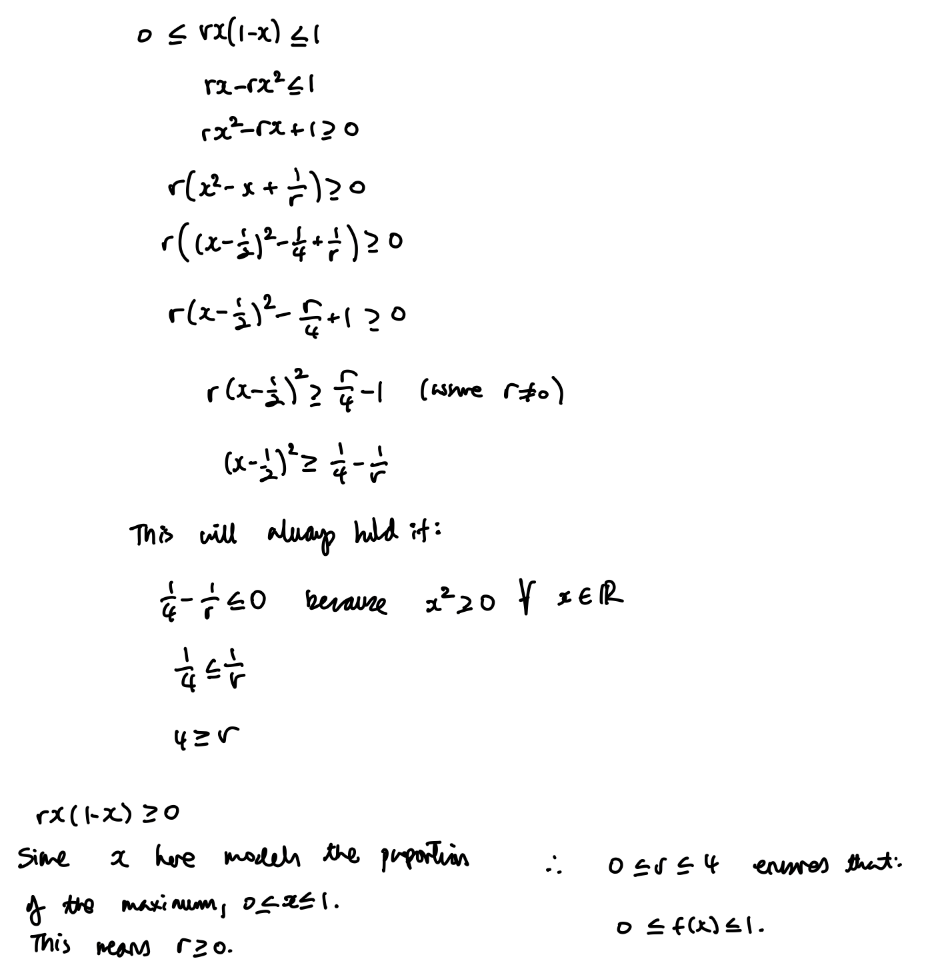 0 ≤ rx(1-x) ≤ 1
rx-rx² ≤ 1
rx²-rx+1 ≥ 0
r(x²-x+1/r) ≥ 0
r((x-1/2)²-1/4+1/r) ≥ 0
r(x-1/2)²-r/4+1 ≥ 0
r(x-1/2)² ≥ r/4-1 (assume r≠0)
(x-1/2)² ≥ 1/4-1/r
This will always hold if:
1/4-1/r ≤ 0 because x² ≥ 0 ∀ x ∈ ℝ
1/4 ≤ 1/r
4 ≥ r
rx(1-x) ≥ 0
Since x here models the proportion
of the maximum, 0 ≤ x ≤ 1.
This means r ≥ 0.
∴ 0 ≤ r ≤ 4 ensures that:
0 ≤ f(x) ≤ 1.